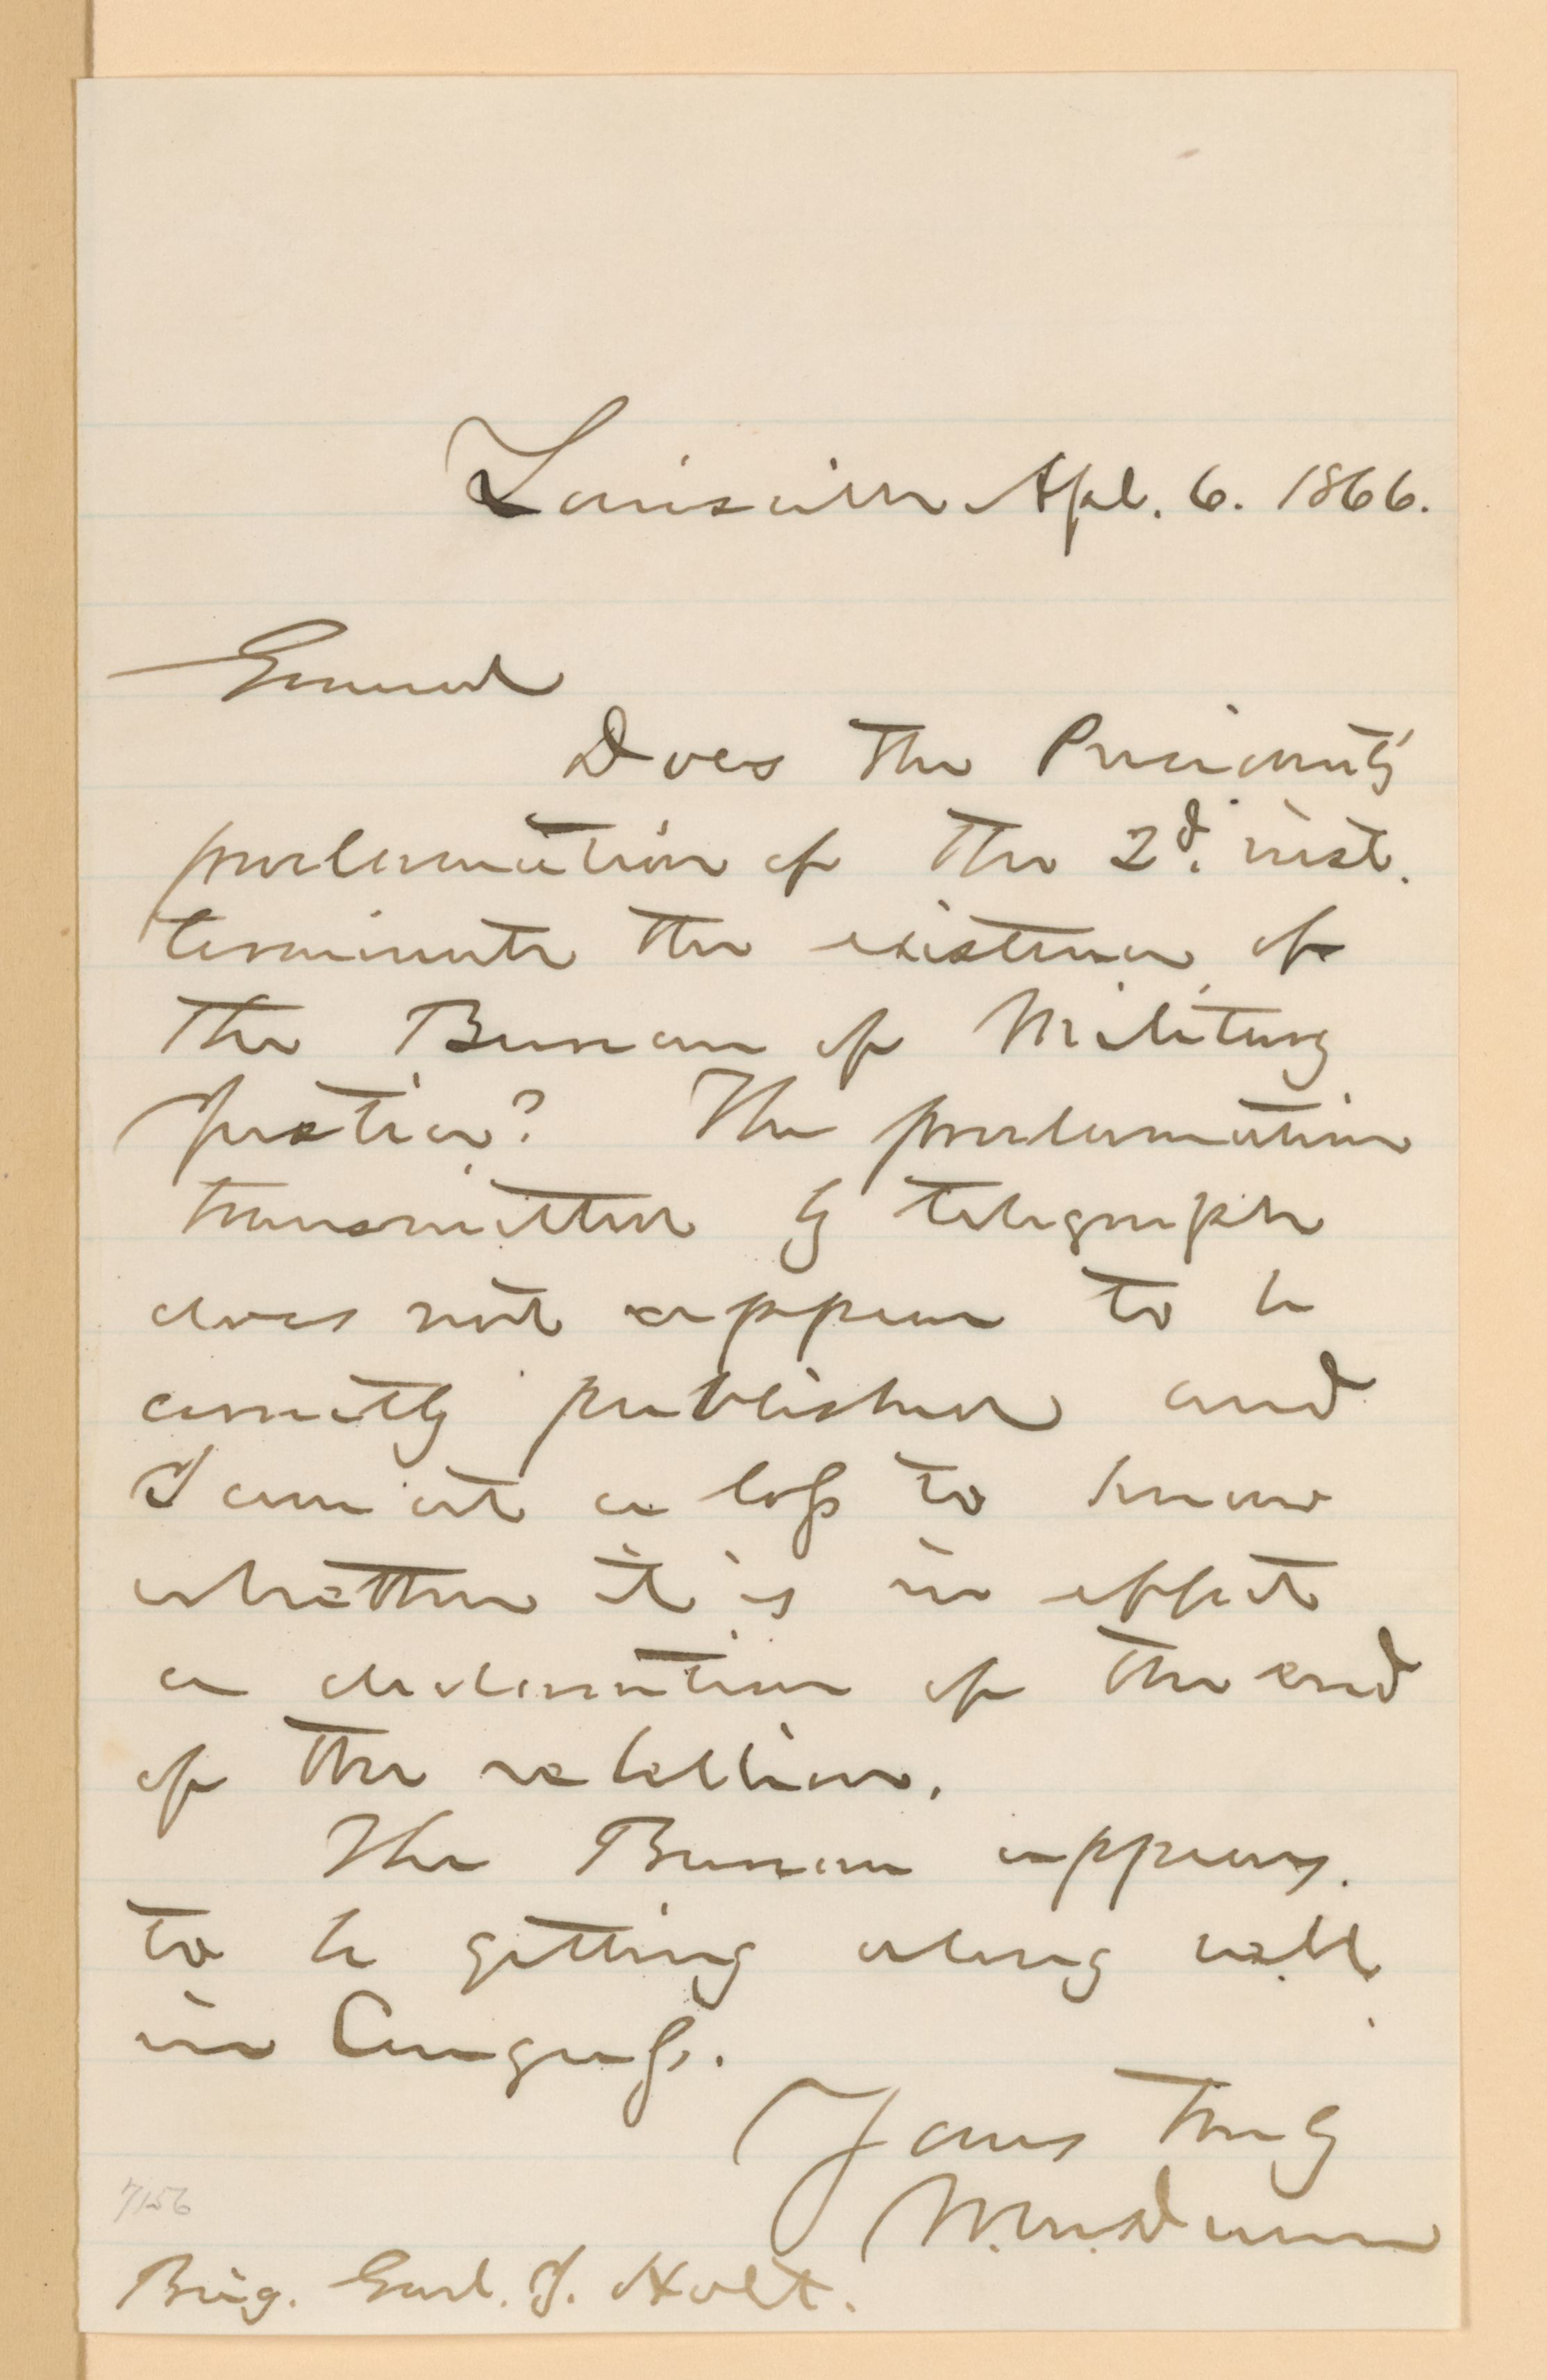 Louisville Apl. 6. 1866.
General
Does the President's
proclamation of the 2d. inst.
terminate the existence of
the Bureau of Military
Justice? The proclamation
transmitted by telegraph
does not appear to be
correctly published and
I am at a loss to know
whether it is in effect
a declaration of the end
of the rebellion.
The Bureau appears
to be getting along well
in Congress.
Yours truly
W. M. Dunn
7156
Brig. Genl. J. Holt.